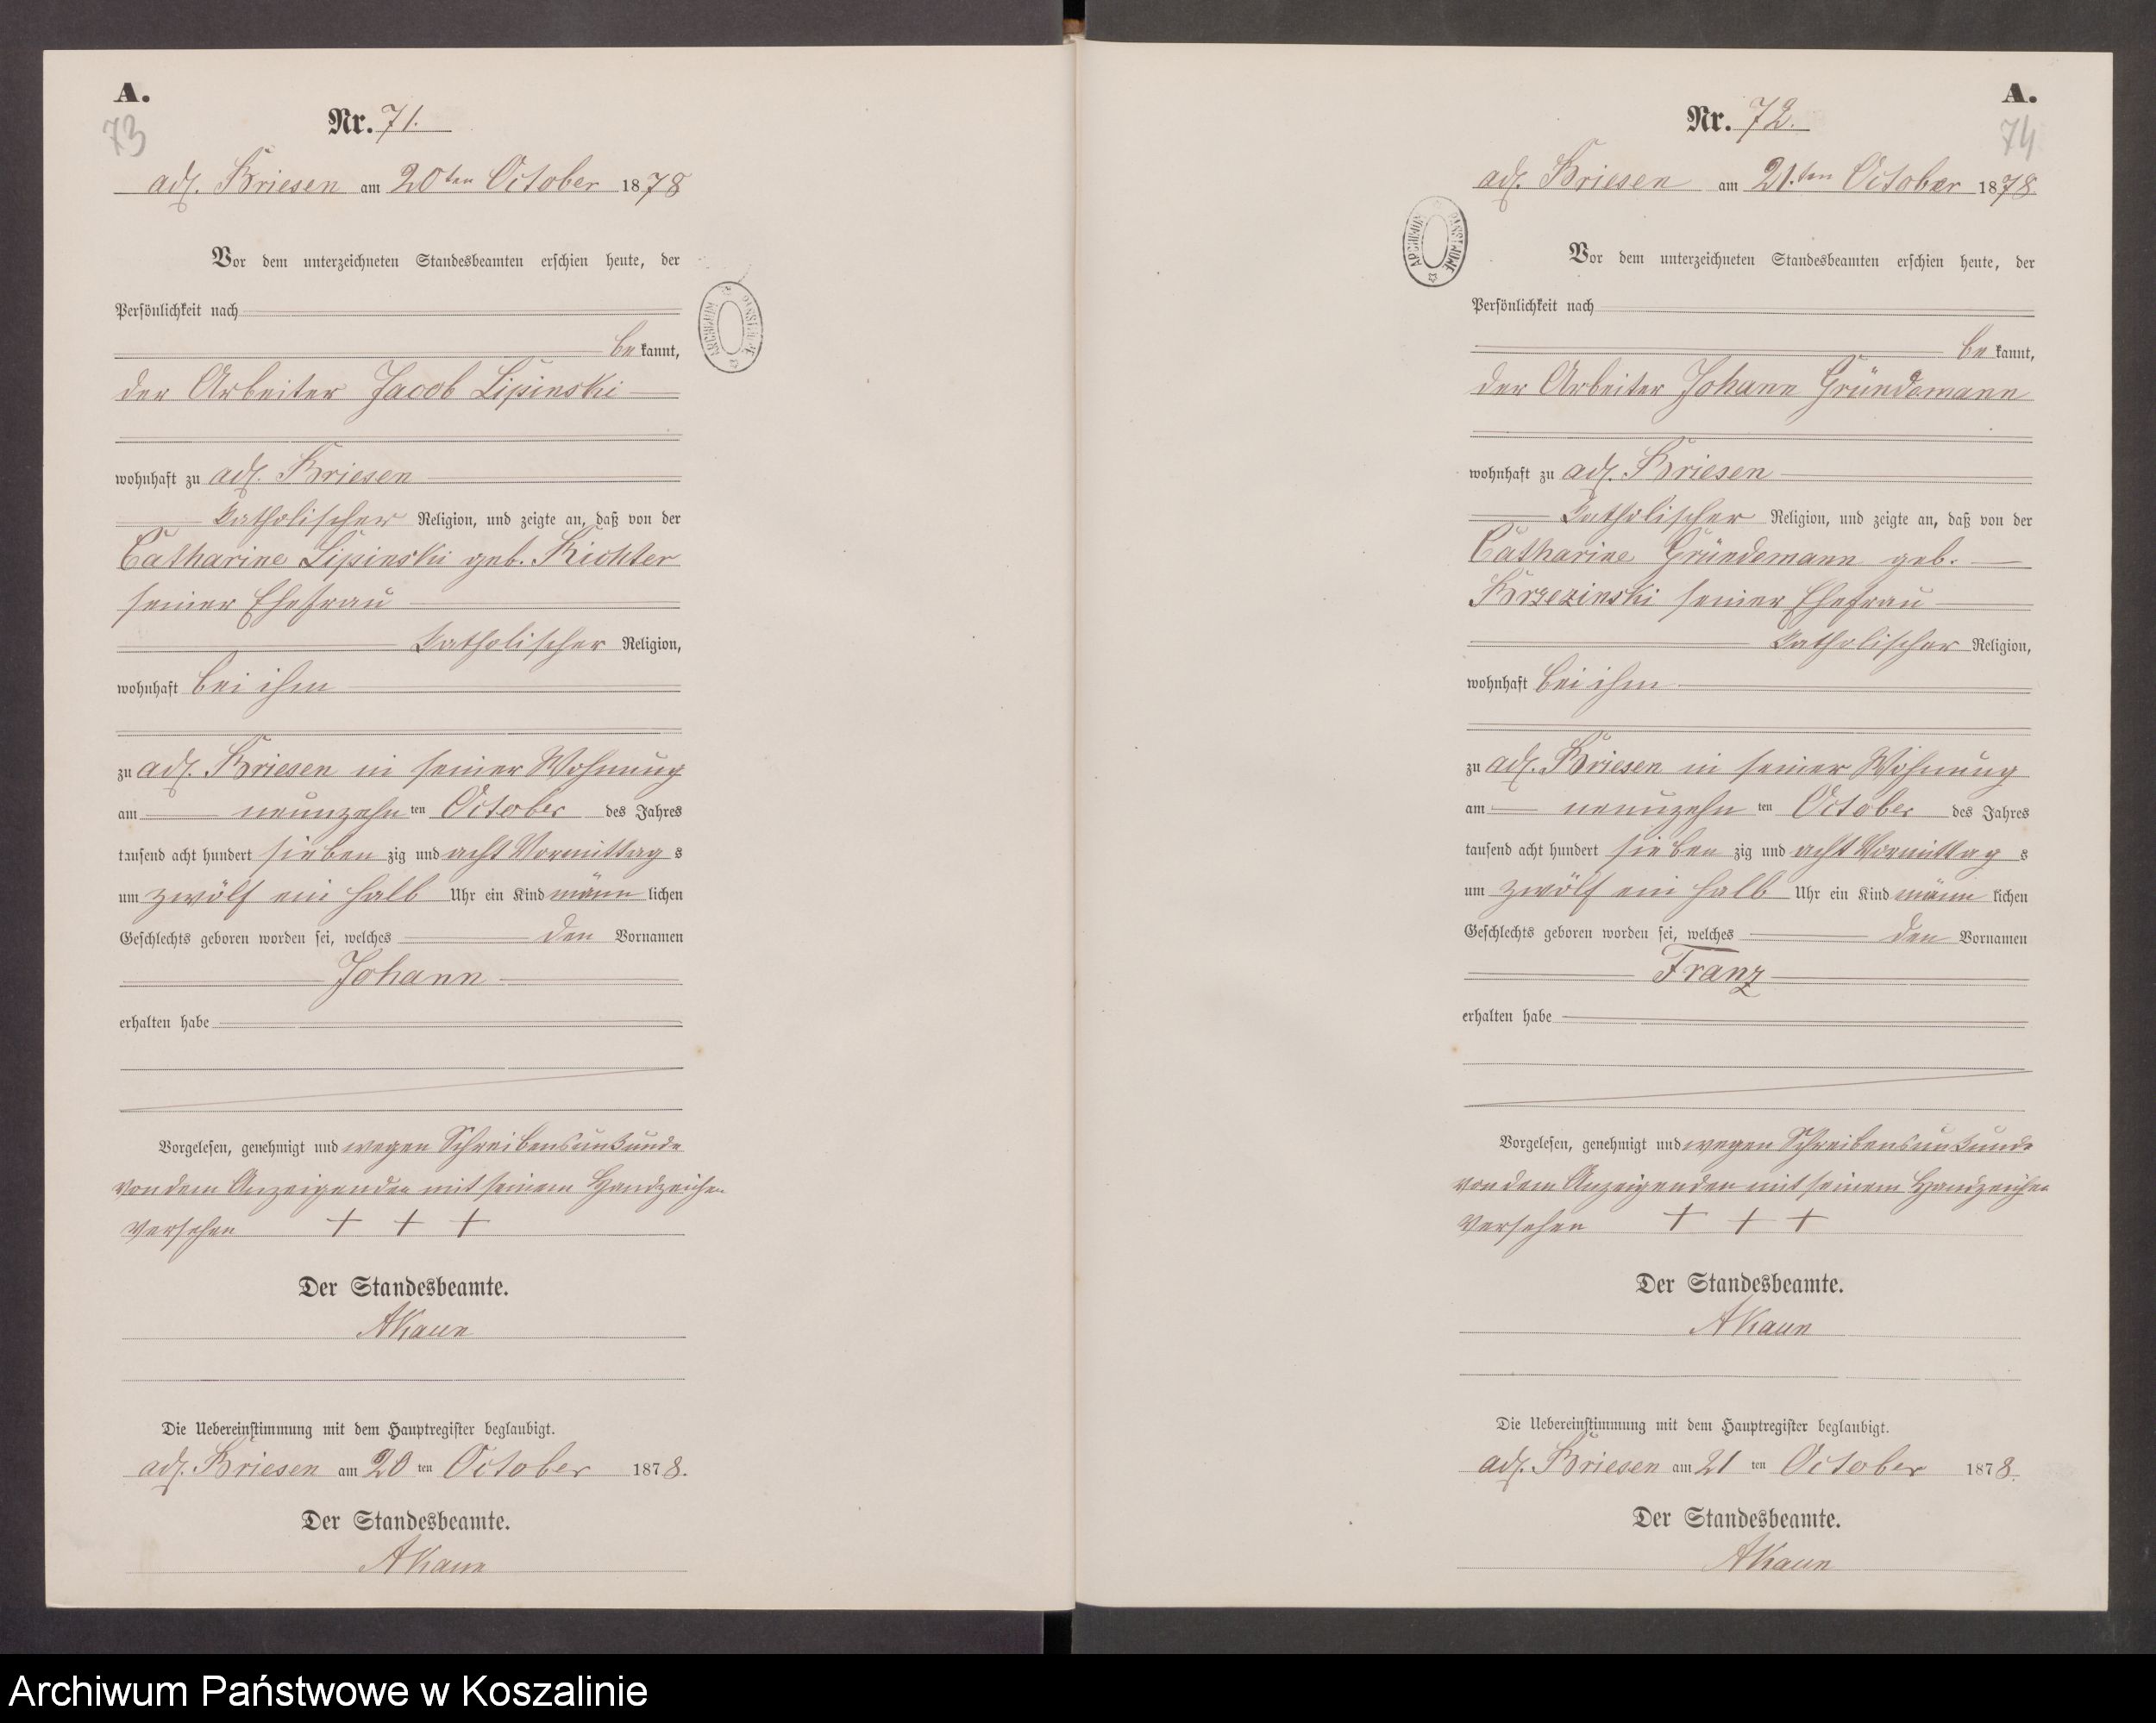 A.
73
Nr. 71.
adl. Briesen am 20ten October 1878
Vor dem unterzeichneten Standesbeamten erschien heute, der
Persönlichkeit nach
be kannt,
der Arbeiter Jacob Lipinski
wohnhaft zu adl. Briesen
katholischer Religion, und zeigte an, daß von der
Catharine Lipinski geb. Richter
seiner Ehefrau
katholischer Religion,
wohnhaft bei ihm
zu adl. Briesen in seiner Wohnung
am neunzehn ten October des Jahres
tausend acht hundert sieben zig und acht Vormittag s
um zwölf ein halb Uhr ein Kind männ lichen
Geschlechts geboren worden sei, welches den Vornamen
Johann
erhalten habe
Vorgelesen, genehmigt und wegen Schreibensunkunde
von dem Anzeigenden mit seinem Handzeichen
versehen + + +
Der Standesbeamte.
AKaun
Die Uebereinstimmung mit dem Hauptregister beglaubigt.
adl. Briesen am 20 ten October 1878.
Der Standesbeamte.
AKaun
ARCHIWUM PAŃSTWOWE
A.
74
Nr. 72.
adl. Briesen am 21.ten October 1878.
Vor dem unterzeichneten Standesbeamten erschien heute, der
Persönlichkeit nach
be kannt,
der Arbeiter Johann Gründemann
wohnhaft zu adl. Briesen
katholischer Religion, und zeigte an, daß von der
Catharine Gründemann geb.
Brzezinski seiner Ehefrau
katholischer Religion,
wohnhaft bei ihm
zu adl. Briesen in seiner Wohnung
am neunzehn ten October des Jahres
tausend acht hundert sieben zig und acht Vormittag s
um zwölf ein halb Uhr ein Kind männ lichen
Geschlechts geboren worden sei, welches den Vornamen
Franz
erhalten habe
Vorgelesen, genehmigt und wegen Schreibensunkunde
von dem Anzeigenden mit seinem Handzeichen
versehen + + +
Der Standesbeamte.
AKaun
Die Uebereinstimmung mit dem Hauptregister beglaubigt.
adl. Briesen am 21 ten October 1878.
Der Standesbeamte.
AKaun
ARCHIWUM PAŃSTWOWE
Archiwum Państwowe w Koszalinie